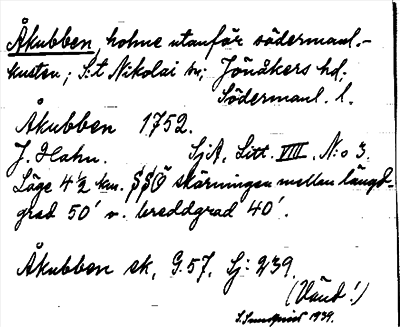 Åkubben, holme utanför södermanl.-
kusten; S:t Nikolai sn; Jönåkers hd;
Södermanl. l.
Åkubben 1752.
J. Hahn. SjA. Litt. VIII. N:o 3.
Läge 4 1/2 km. SSÖ skärningen mellan längd-
grad 50' o. breddgrad 40'.
Åkubben sk. G.57. Sj: 239.
(Vänd!)
S. Sundqvist 1939.